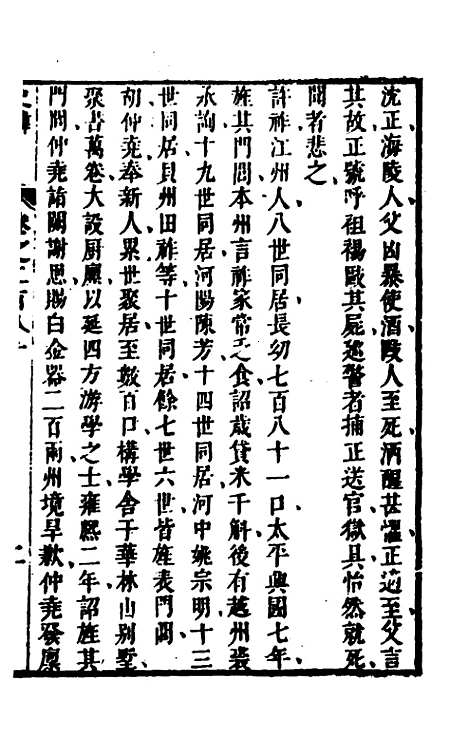 沈正海陵人父凶暴使酒毆人至死酒醒甚懼正適至父言
其故正號呼袒裼毆其屍邏警者捕正送官獄具怡然就死
聞者悲之
許祚江州人八世同居長幼七百八十一口太平興國七年
旌其門閭本州言祚家常乏食詔歲貸米千斛後有越州裘
承詢十九世同居河陽陳芳十四世同居河中姚宗明十三
世同居貝州田祚等十世同居餘七世六世皆旌表門閭
胡仲堯奉新人累世聚居至數百口構學舍于華林山別墅
聚書萬卷大設厨廩以延四方游學之士雍熙二年詔旌其
門閭仲堯詣闕謝恩賜白金器二百兩州境旱歉仲堯發廩
卷之三百八十